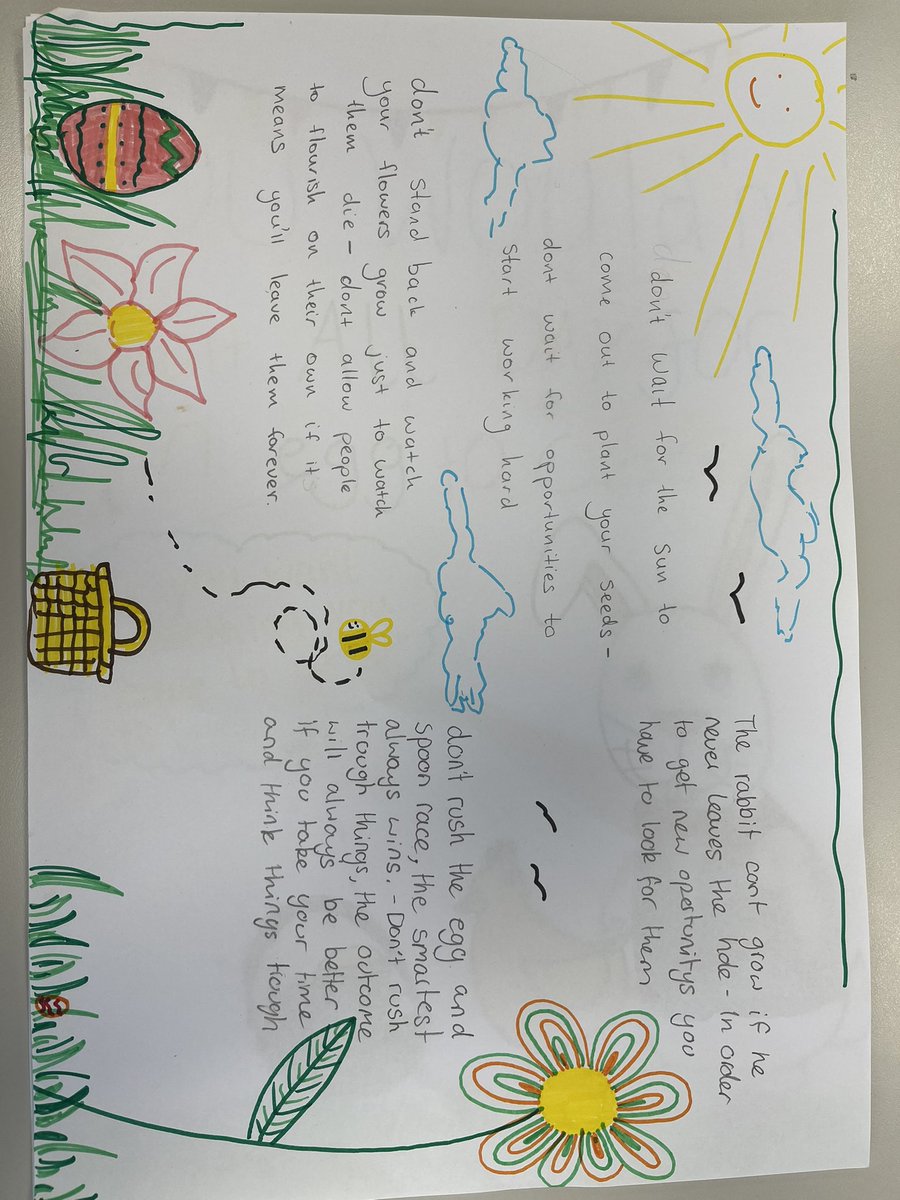 don't wait for the sun to
come out to plant your seeds -
dont wait for opportunities to
start working hard
don't stand back and watch
your flowers grow just to watch
them die - dont allow people
to flourish on their own if it
means you'll leave them forever.
The rabbit can't grow if he
never leaves the hole - In order
to get new opertunitys you
have to look for them
don't rush the egg and
spoon race, the smartest
always wins. - Don't rush
trough things, the outcome
will always be better
if you take your time
and think things trough